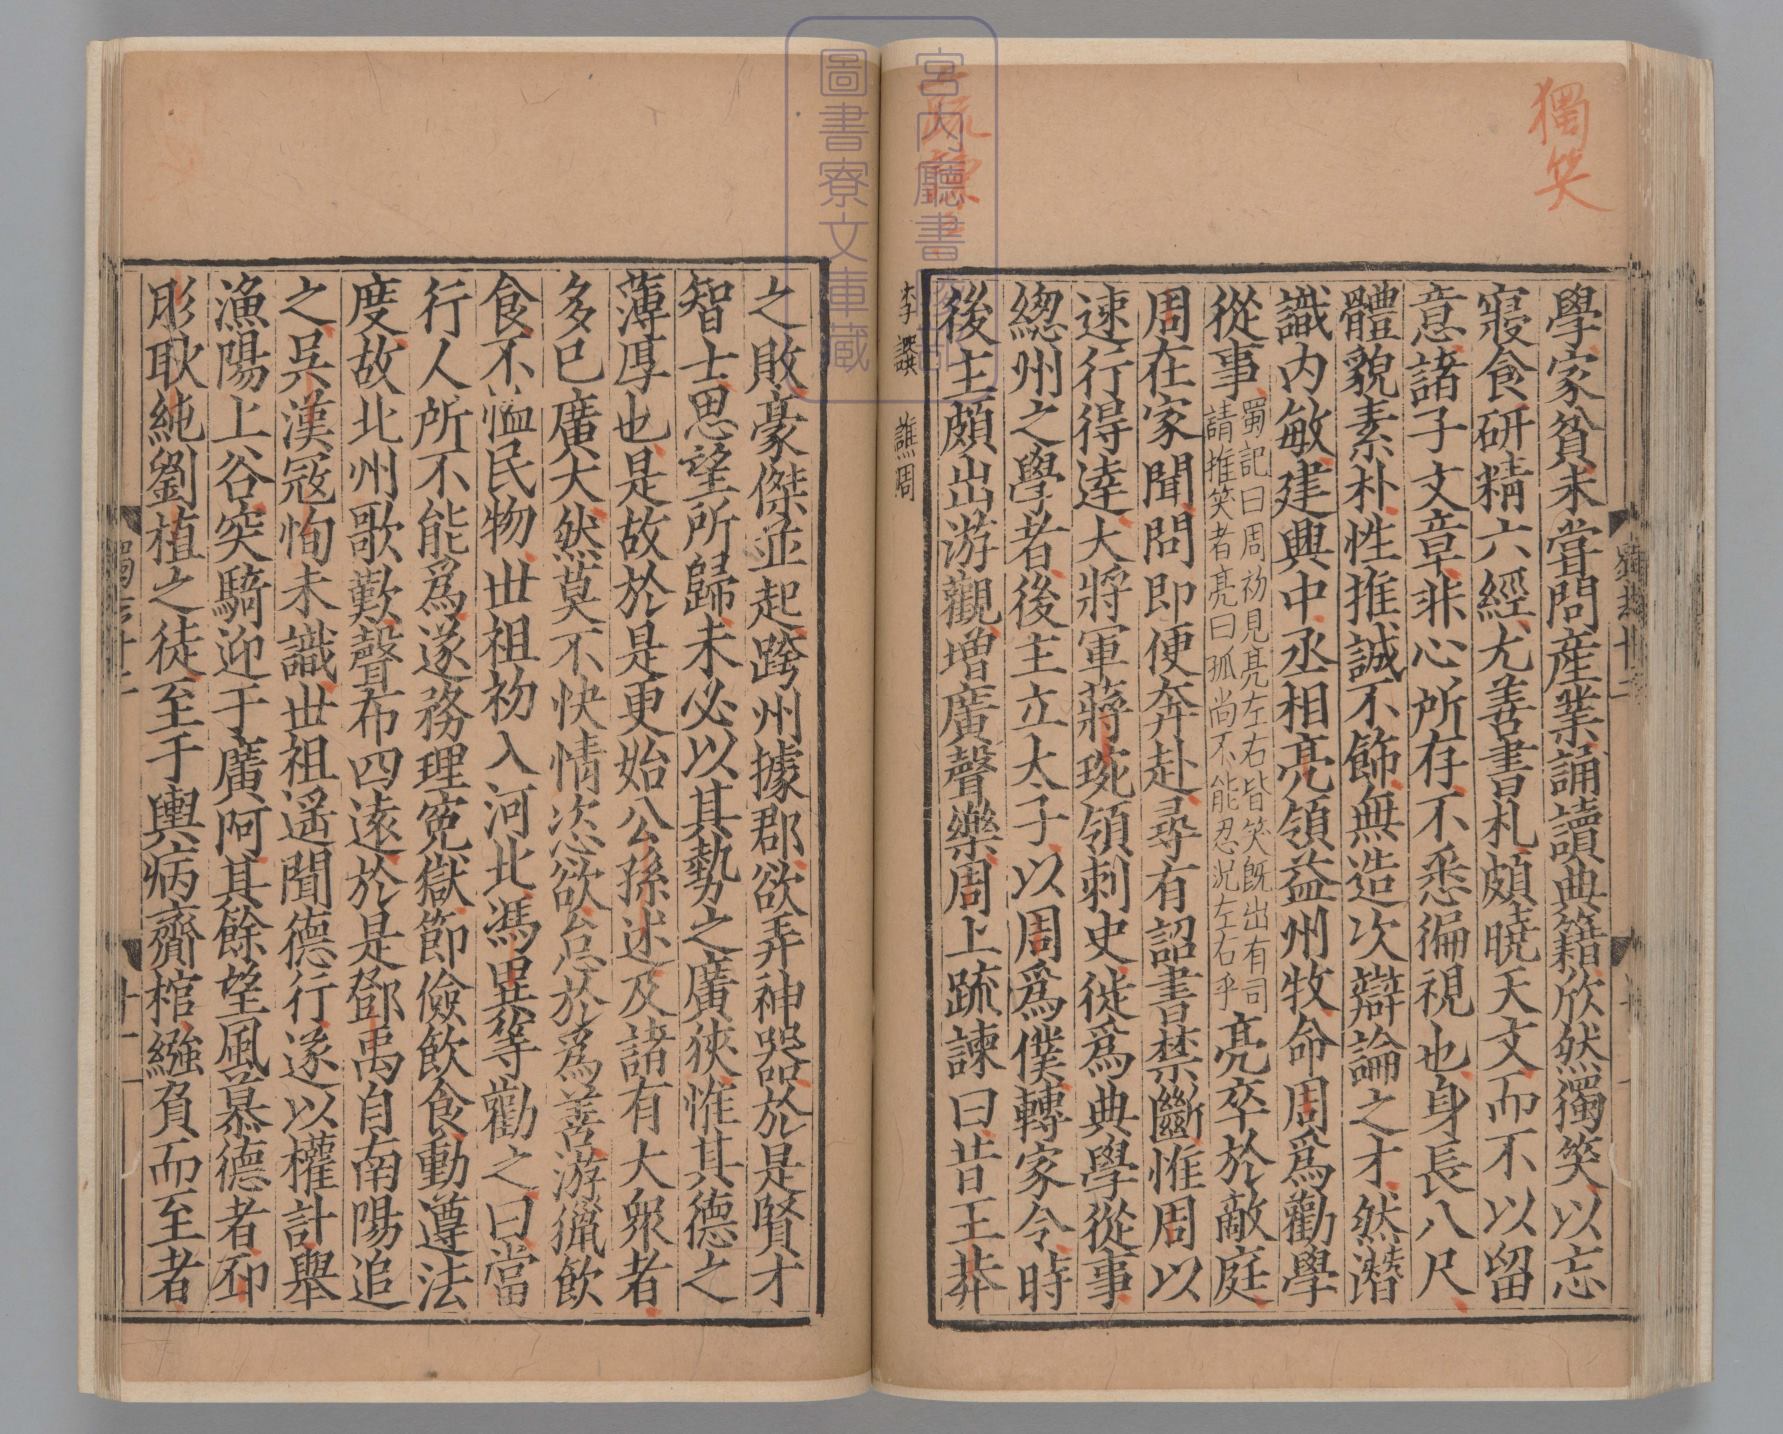 獨笑
學家貧未嘗問産業誦讀典籍欣然獨笑以忘
寢食研精六經尤善書札頗曉天文而不以留
意諸子文章非心所存不悉徧視也身長八尺
體貌素朴性推誠不飾無造次辯論之才然潛
識内敏建興中丞相亮領益州牧命周爲勸學
從事蜀記曰周初見亮左右皆笑既出有司請推笑者亮曰孤尚不能忍況左右乎亮卒於敵庭
周在家聞問即便奔赴尋有詔書禁斷惟周以
速行得逹大將軍蔣琬領刺史徙爲典學從事
緫州之學者後主立太子以周爲僕轉家令時
後主頗出游觀增廣聲樂周上疏諫曰昔王莽
李譔 譙周
之敗豪傑並起跨州據郡欲弄神器於是賢才
智士思望所歸未必以其勢之廣狹惟其德之
薄厚也是故於是更始公孫述及諸有大衆者
多已廣大然莫不快情恣欲怠於爲善游獵飲
食不恤民物世祖初入河北馮異等勸之曰當
行人所不能爲遂務理寃獄節儉飲食動遵法
度故北州歌歎聲布四遠於是鄧禹自南陽追
之吳漢宼恂未識世祖遥聞德行遂以權計舉
漁陽上谷突騎迎于廣阿其餘望風慕德者邳
肜耿純劉植之徒至于輿病齎棺繦負而至者
宮内廳書陵部
圖書寮文庫藏